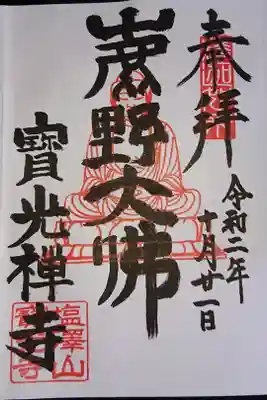 奉拝
令和二年
十月廿一日
鹿野大佛
寶光禅寺
塩澤山